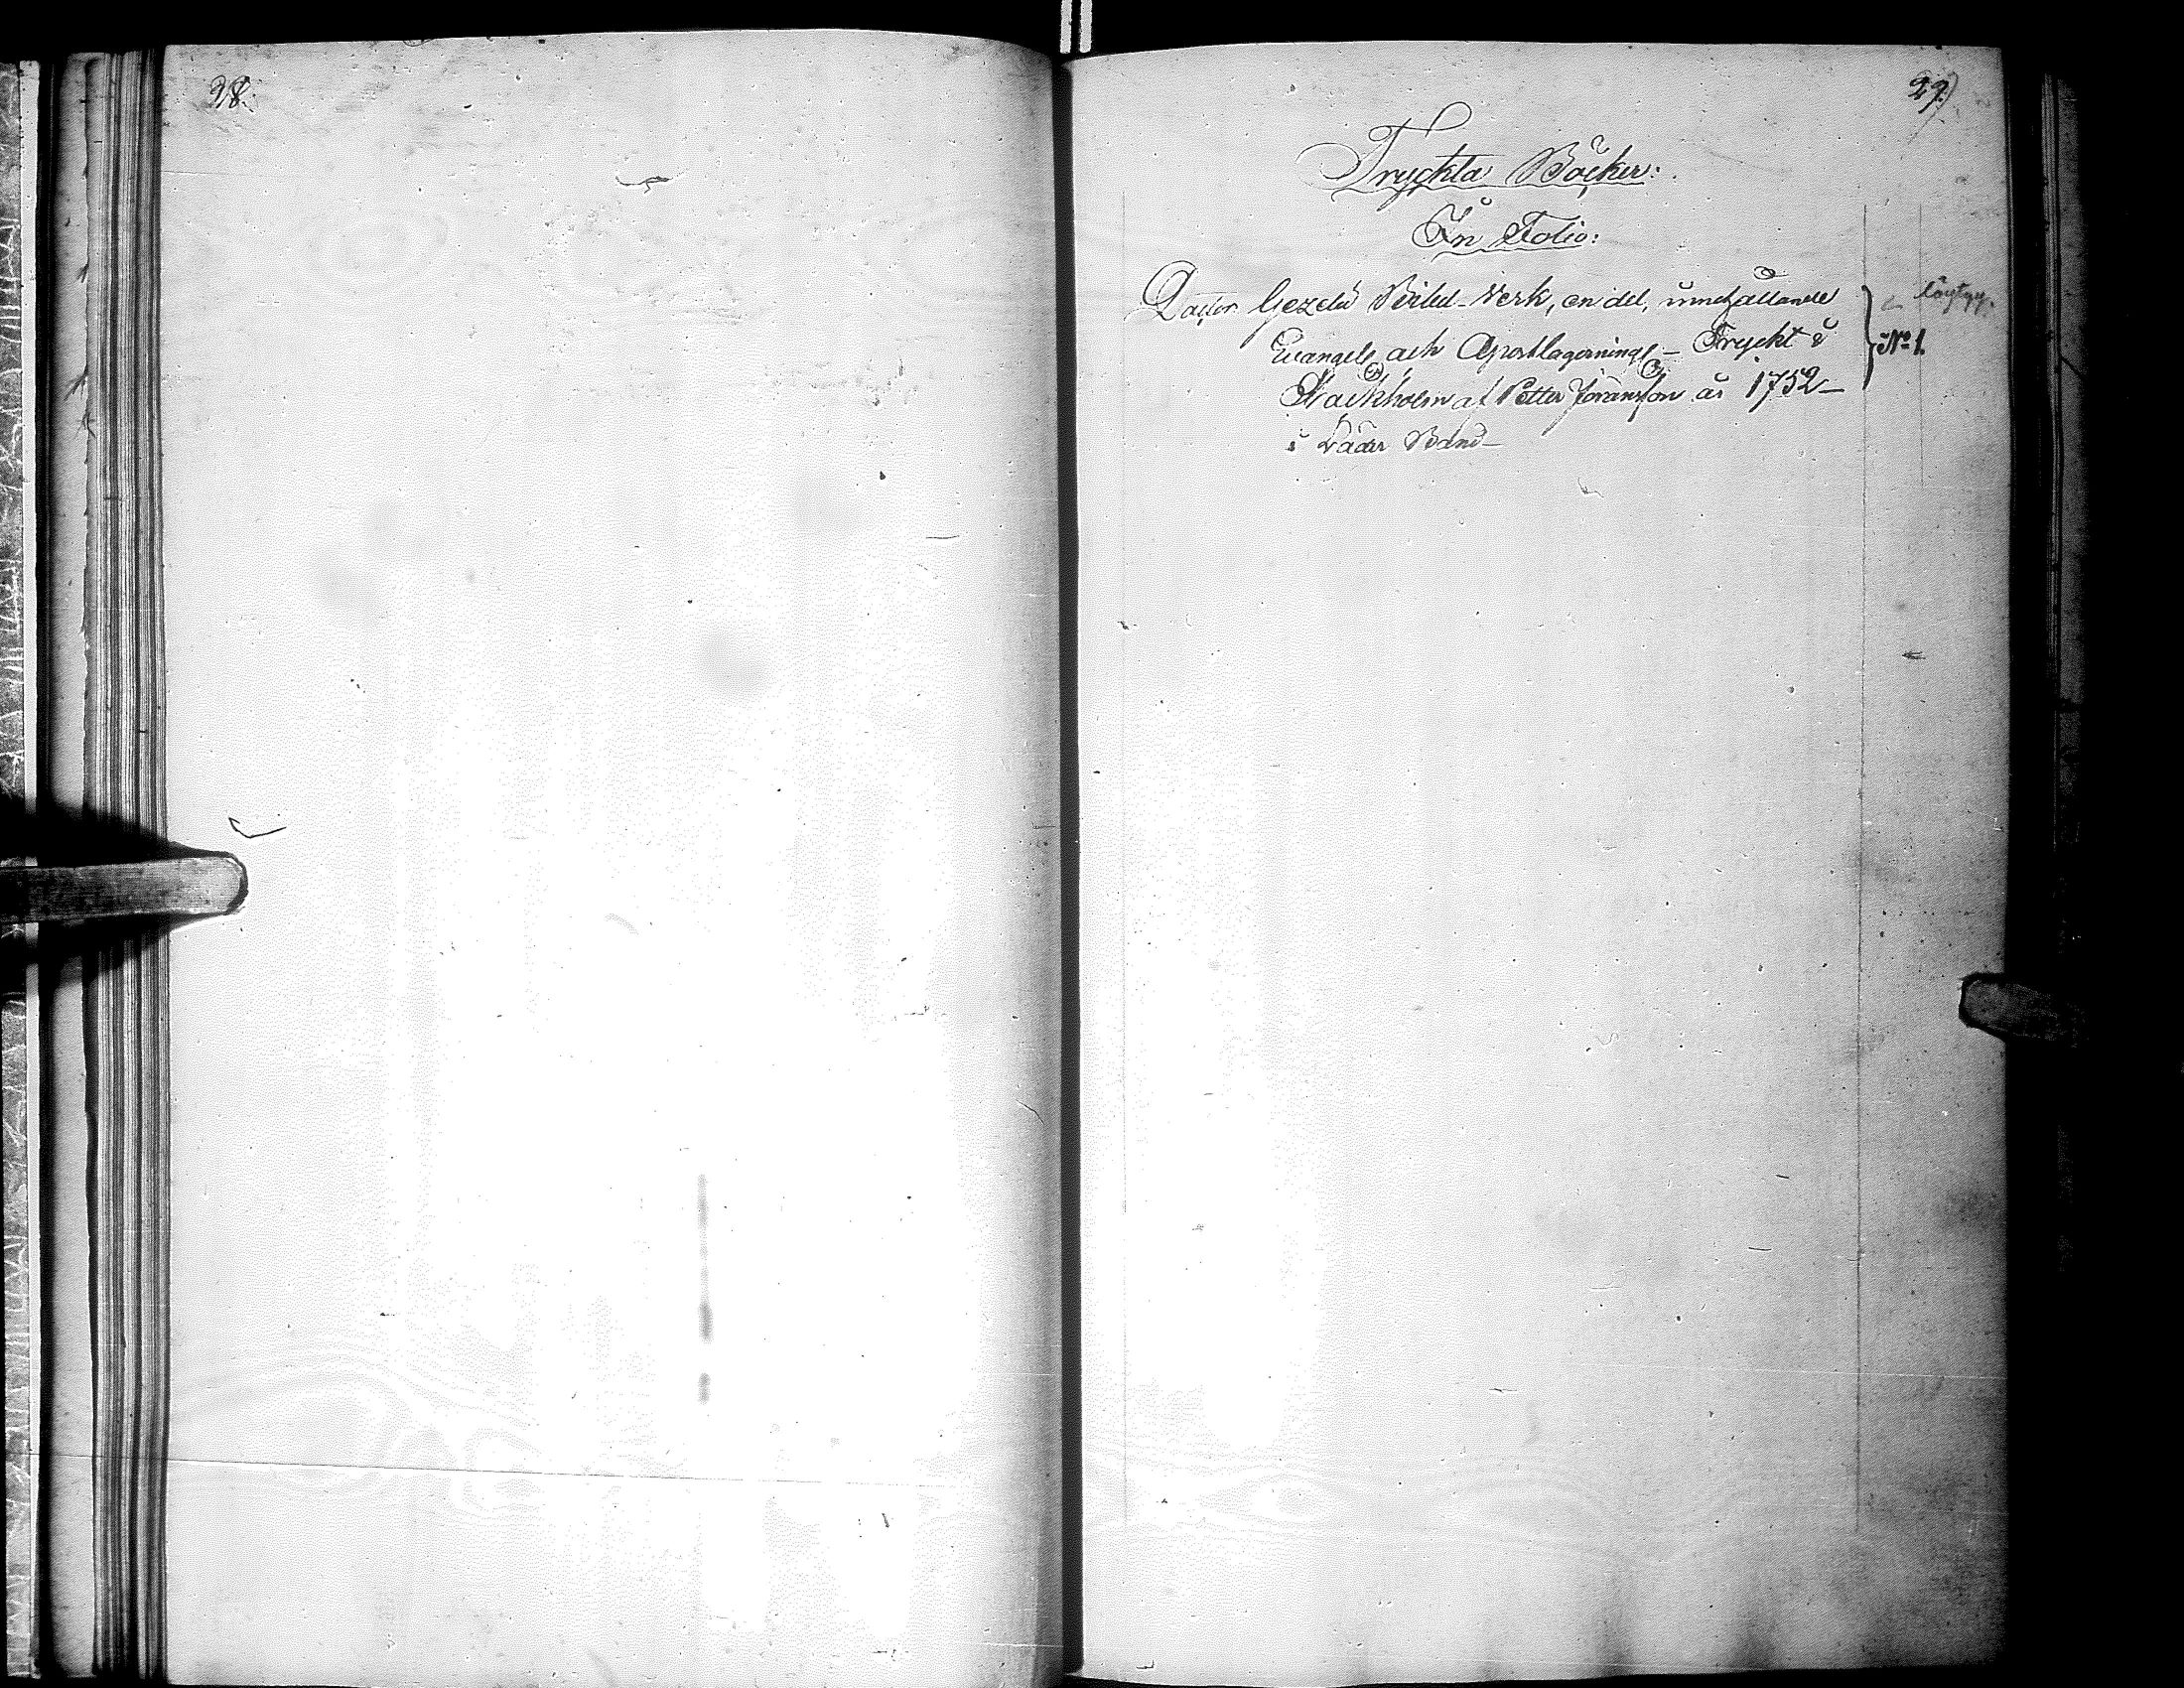 28.
29.
Tryckta Böcker:
In Folio:
Doctor Gezelii Bibel-Verk, en del, innehållande
Evangel. och Apostlagerning. – Tryckt i
Stockholm af Petter Jöransson år 1752 –
i Läder Band –
löytyy.
N:o 1.